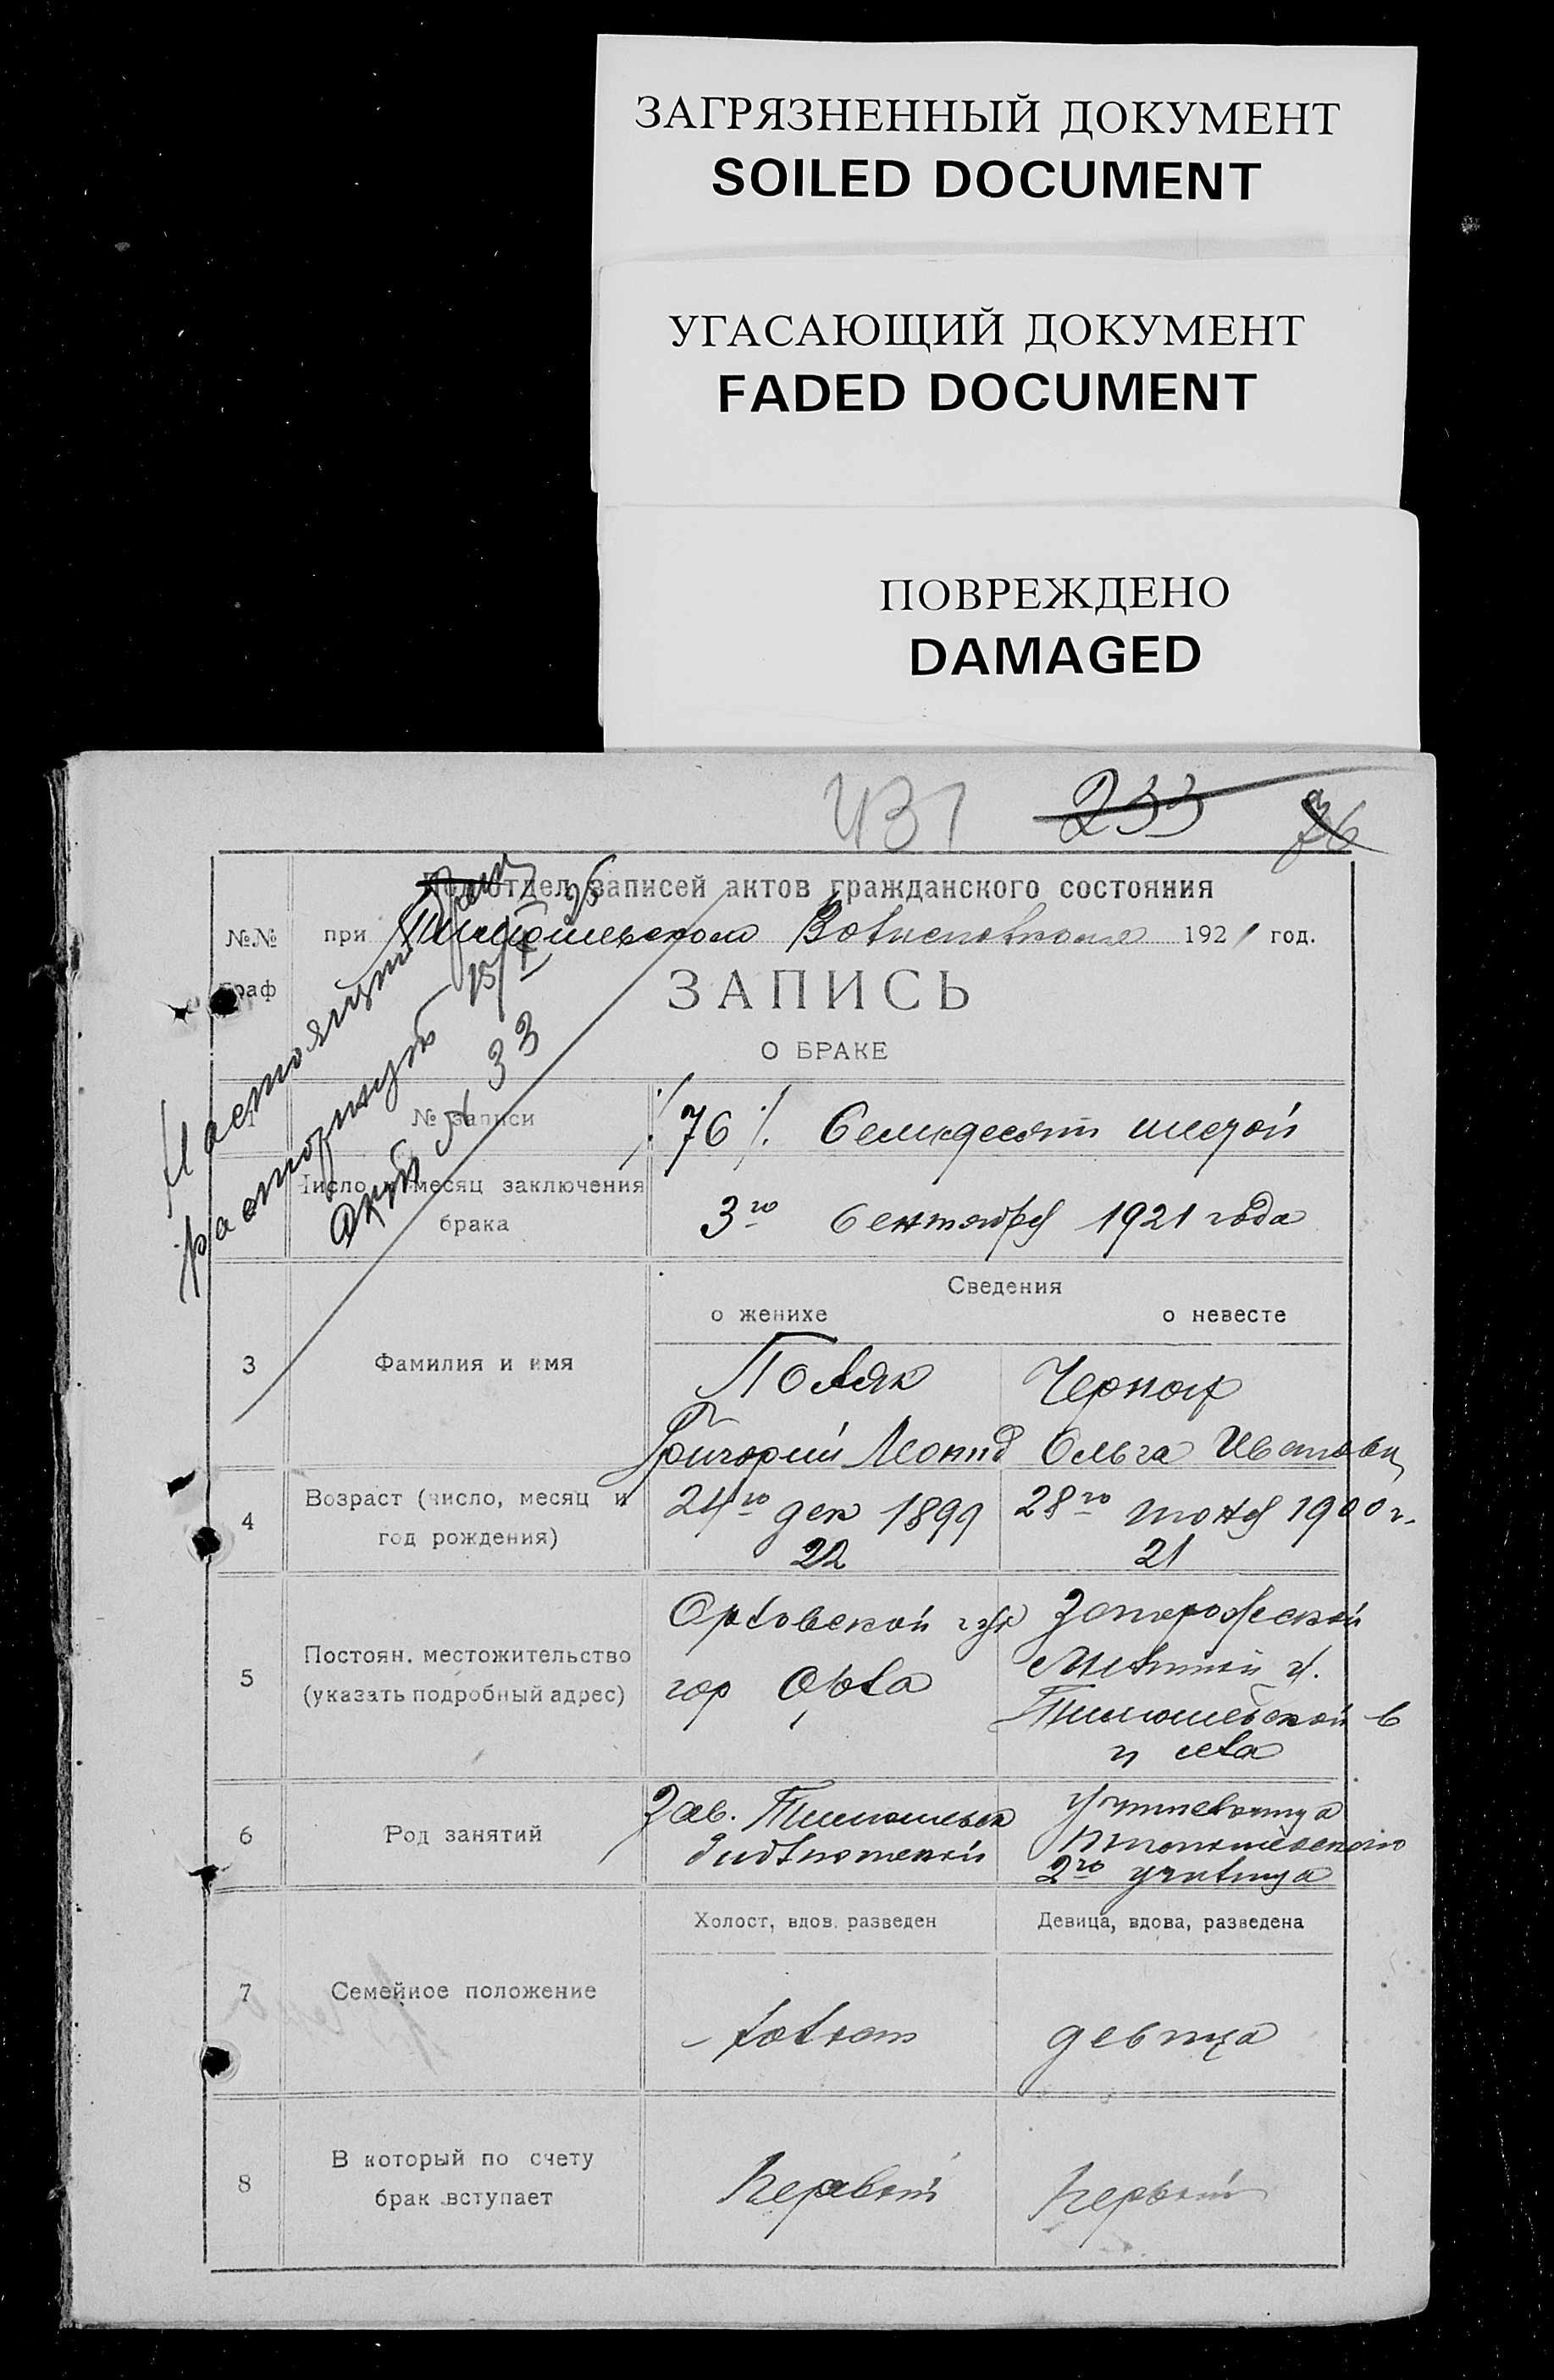 ЗАГРЯЗНЕННЫЙ ДОКУМЕНТ
SOILED DOCUMENT
УГАСАЮЩИЙ ДОКУМЕНТ
FADED DOCUMENT
ПОВРЕЖДЕНО
DAMAGED
431 233 76
отдел записей актов гражданского состояния
№№ граф
при Тимошевском Волисполкоме 1921 год.
ЗАПИСЬ
О БРАКЕ
Настоящий брак
расторгнут 15/X 26
акт № 33
1 № записи 76 Семьдесят шестой
Число и месяц заключения
брака
3го Сентября 1921 года
Сведения
о женихе о невесте
3 Фамилия и имя
Поляк Черноц
Григорий Леонид Ольга Ивановн
4 Возраст (число, месяц и
год рождения)
24го дек 1899 28го июня 1900 г.
22 21
5 Постоян. местожительство
(указать подробный адрес)
Орловской губ Запорожской
гор Орла
Тимошевской в
6 Род занятий
Зав. Тимошевск учительница
библиотекой Тимошевского
2го училища
Холост, вдов. разведен Девица, вдова, разведена
7 Семейное положение
холост девица
8 В который по счету
брак вступает
первый первый